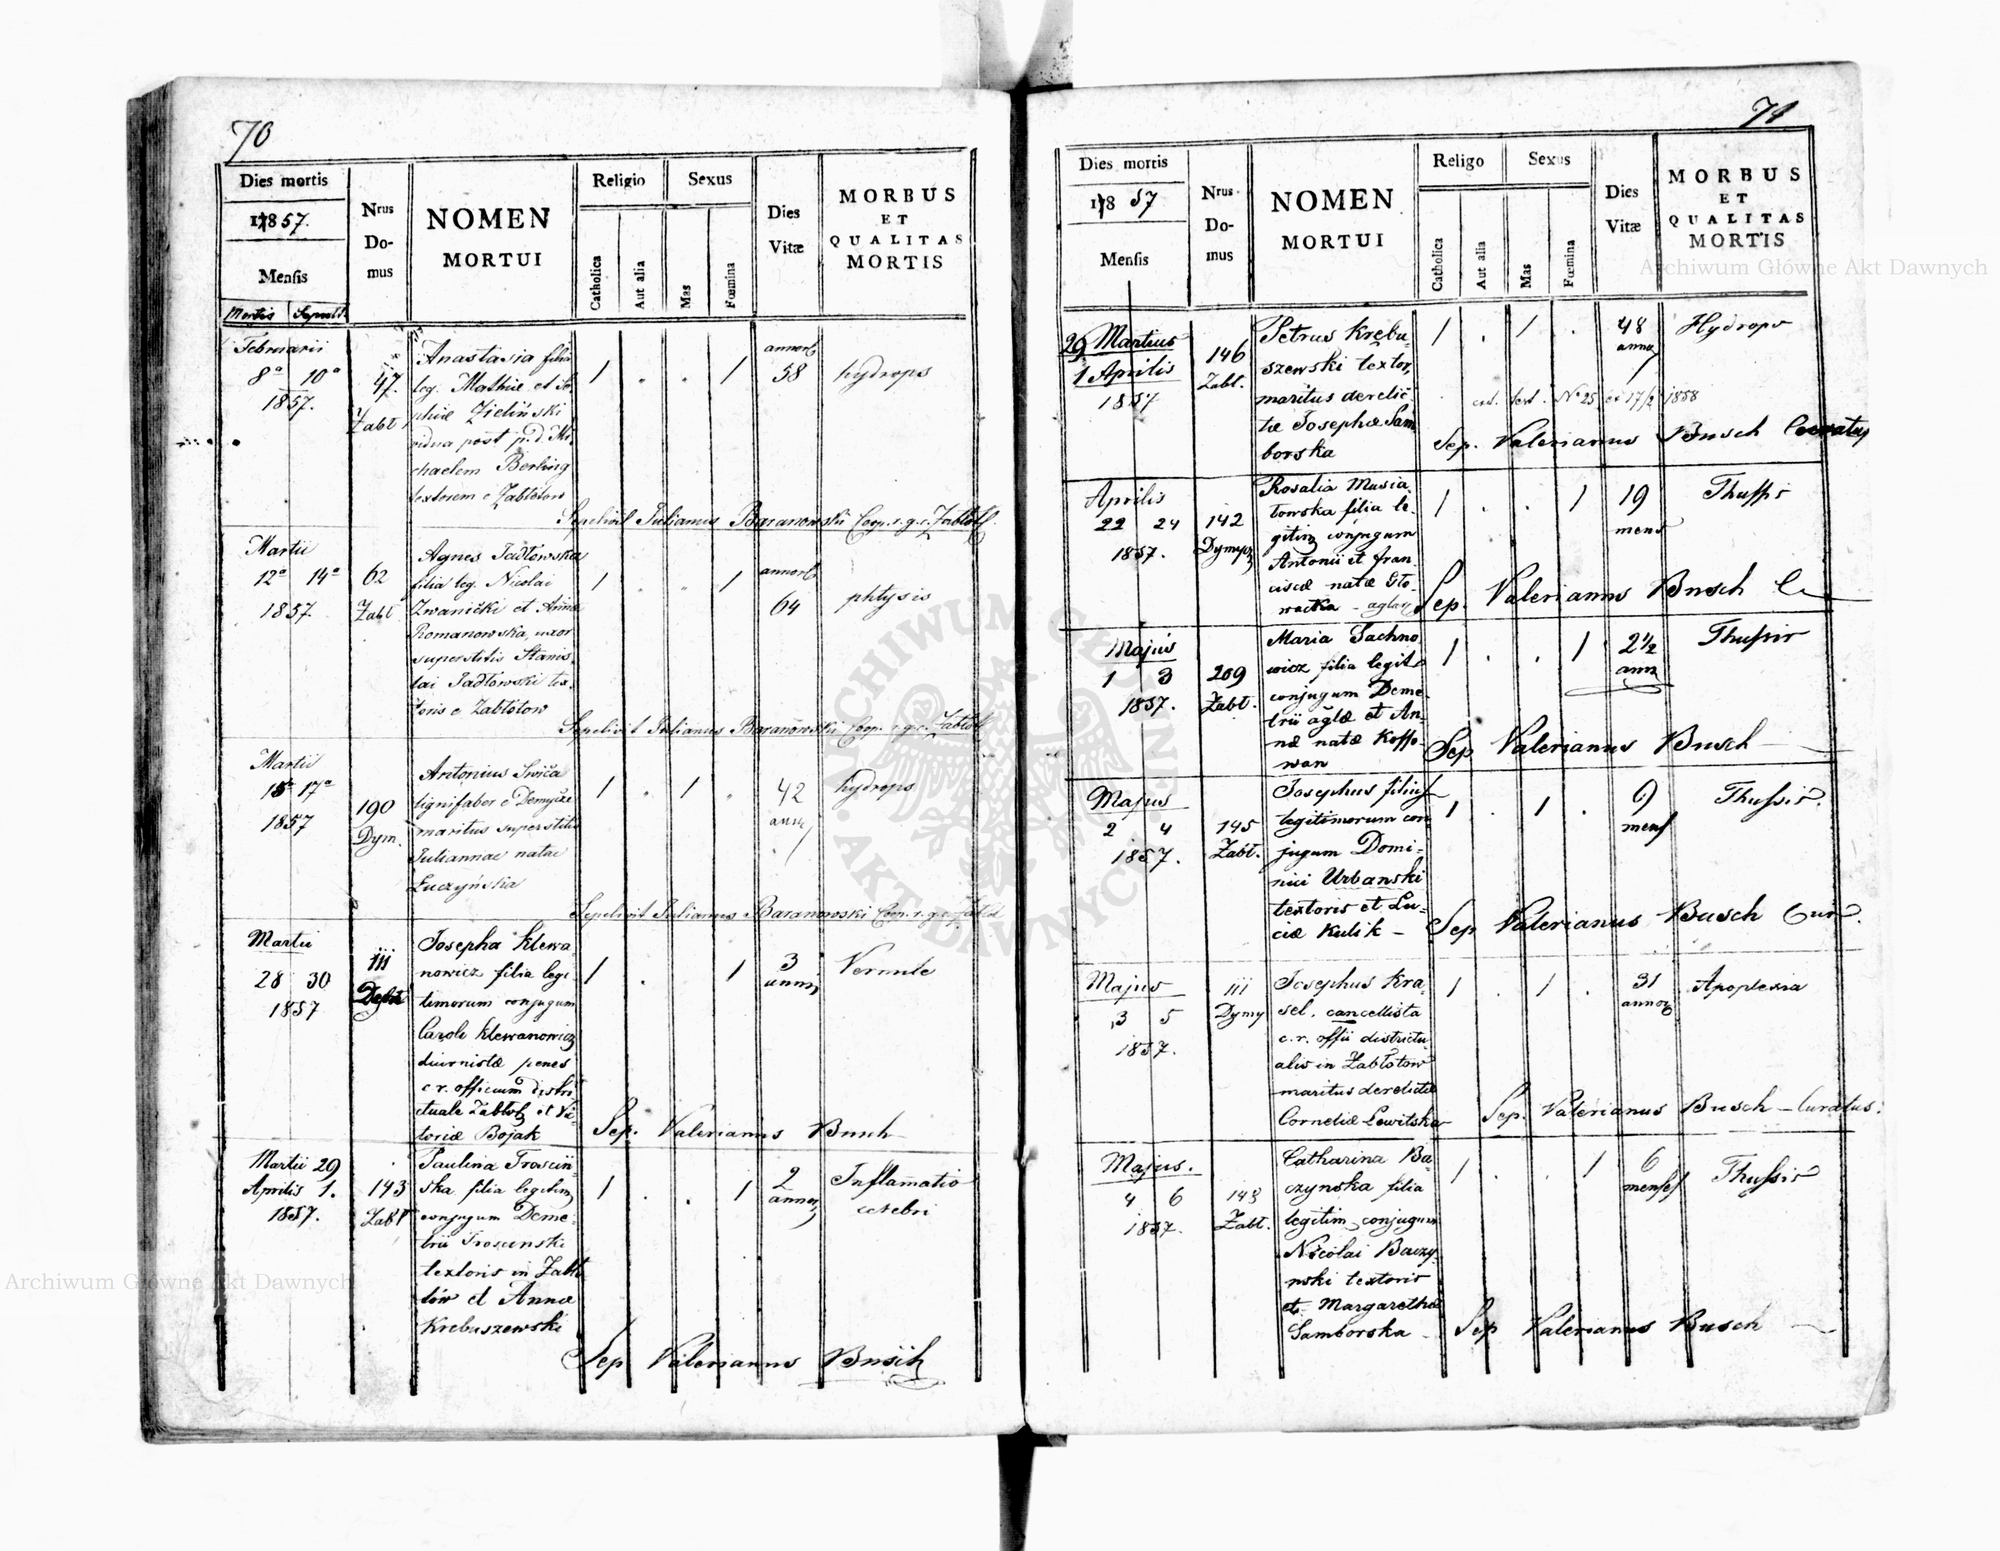 70
Dies mortis
1857.
Mensis
Mortis Sepult.
Nrus Do-mus
NOMEN MORTUI
Religio
Catholica
Aut alia
Sexus
Mas
Fœmina
Dies Vitæ
MORBUS ET QUALITAS MORTIS
Februarii
8ª 10ª
1857.
47.
Zabł
Anastasia filia
leg. Mathiæ et So
phiæ Zieliński
vidua post p. d. Mi
chaelem Berling
textorem e Zabłotow
1 . . 1
annor
58
hydrops
Sepelivit Julianus Baranowski Coop. r. g. c. Zabłot.
Martii
12ª 14ª
1857.
62
Zabł
Agnes Jadłowska
filia leg. Nicolai
Iwanicki et Annæ
Romanowska, uxor
superstitis Stanis
lai Jadłowski tex
toris e Zabłotow
1 . . 1
annor
64
phtysis
Sepelivit Julianus Baranowski Coop. r. g. c. Zabłot
Martii
15ª 17ª
1857
190
Dym.
Antonius
lignifaber e Demycze
maritus superstitis
Juliannae natae
Łuczyńska
1 . 1 .
42
ann
hydrops
Sepelivit Julianus Baranowski Coop. r. g. c. Zabłot
Martii
28 30
1857
111
Josepha Klewa
nowicz filia legi
timorum conjugum
Caroli Klewanowicz
diurnistæ penes
c. r. officium distri
ctuale Zabłot et Vi
toriæ Bojak
1 . . 1
3
annor
Sep. Valerianus Busch
Martii 29
Aprilis 1.
1857.
143
Zabł
Paulina Troscin
ska filia legitim
conjugum Deme
trii Troscinski
textoris in Zabło
tów et Annæ
Krebuszewski
1 . . 1
2
annor
Inflamatio
cerebri
Sep Valerianus Busch
71
Dies mortis
18 57
Mensis
Nrus Do-mus
NOMEN MORTUI
Religo
Catholica
Aut alia
Sexus
Mas
Fœmina
Dies Vitæ
MORBUS ET QUALITAS MORTIS
29 Martius
1 Aprilis
1857
146
Zabł.
Petrus Krebu-
szewski textor,
maritus derelic-
tæ Josephæ Sam
borska
1 . 1 .
48
anno
Hydrops
N 25 17/2 1858
Sep. Valerianus Busch Curatus
Aprilis
22 24
1857.
142
Dymycz
Rosalia Musia
towska filia le-
gitim conjugum
Antonii et Fran
ciscæ natæ Gło
wacka
1 . . 1
19
mens
Thussis
Sep. Valerianus Busch
Majus
1 3
1857.
209
Zabł.
Maria Pachno
wicz filia legit
conjugum Deme
trii et An-
næ natæ Koffo-
wan
1 . . 1
2 1/2
ann
Thussis
Sep Valerianus Busch
Majus
2 4
1857.
145
Zabł.
Josephus filius
legitimorum con
jugum Domi-
nici Urbanski
textoris et Lu-
ciæ Kulik
1 . 1 .
9
mens
Thussis.
Sep Valerianus Busch Cur.
Majus
3 5
1857.
111
Dymy
Josephus Kra-
sel, cancellista
c. r. offii districtu
alis in Zabłotow
maritus derelictæ
Corneliæ Lewitska
1 . 1 .
31
annor
Apoplexia
Sep. Valerianus Busch - Curatus.
Majus.
4 6
1857.
148
Zabł.
Catharina Ba-
czynska filia
legitim conjugum
Nicolai Baczy-
nski textoris
et Margarethæ
Samborska
1 . . 1
6
menses
Thussis
Sep Valerianus Busch
Archiwum Główne Akt Dawnych
Archiwum Główne Akt Dawnych
ARCHIWUM GŁÓWNE AKT DAWNYCH